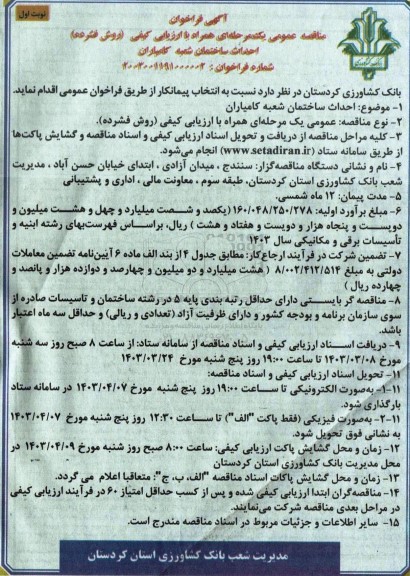 نوبت اول
آگهی فراخوان
مناقصه عمومی یک‌مرحله‌ای همراه با ارزیابی کیفی (روش فشرده)
احداث ساختمان شعبه کامیاران
شماره فراخوان: ۲۰۰۳۰۰۱۱۹۱۰۰۰۰۰۲
بانک کشاورزی کردستان در نظر دارد نسبت به انتخاب پیمانکار از طریق فراخوان عمومی اقدام نماید.
۱- موضوع: احداث ساختمان شعبه کامیاران
۲- نوع مناقصه: عمومی یک مرحله‌ای همراه با ارزیابی کیفی (روش فشرده).
۳- کلیه مراحل مناقصه از دریافت و تحویل اسناد ارزیابی کیفی و اسناد مناقصه و گشایش پاکت‌ها
از طریق سامانه ستاد (www.setadiran.ir) انجام می‌شود.
۴- نام و نشانی دستگاه مناقصه‌گزار: سنندج، میدان آزادی، ابتدای خیابان حسن آباد، مدیریت
شعب بانک کشاورزی استان کردستان، طبقه سوم، معاونت مالی، اداری و پشتیبانی
۵- مدت پیمان: ۱۲ ماه شمسی.
۶- مبلغ برآورد اولیه: ۱۶۰/۰۴۸/۲۵۰/۲۷۸ (یکصد و شصت میلیارد و چهل و هشت میلیون و
دویست و پنجاه هزار و دویست و هفتاد و هشت) ریال، براساس فهرست‌بهای رشته ابنیه و
تأسیسات برقی و مکانیکی سال ۱۴۰۳
۷- تضمین شرکت در فرآیند ارجاع‌کار: مطابق جدول ۴ از بند الف ماده ۶ آیین‌نامه تضمین معاملات
دولتی به مبلغ ۸/۰۰۲/۴۱۲/۵۱۴ (هشت میلیارد و دو میلیون و چهارصد و دوازده هزار و پانصد و
چهارده ریال)
۸- مناقصه گر بایستی دارای حداقل رتبه بندی پایه ۵ در رشته ساختمان و تاسیسات صادره از
سوی سازمان برنامه و بودجه کشور و دارای ظرفیت آزاد (تعدادی و ریالی) و حداقل سه ماه اعتبار
باشد.
۹- دریافت اسناد ارزیابی کیفی و اسناد مناقصه از سامانه ستاد: از ساعت ۸ صبح روز سه شنبه
مورخ ۱۴۰۳/۰۳/۰۸ تا ساعت ۱۹:۰۰ روز پنج شنبه مورخ ۱۴۰۳/۰۳/۲۴
۱۱- تحویل اسناد ارزیابی کیفی و اسناد مناقصه:
۱-۱۱- به‌صورت الکترونیکی تا ساعت ۱۹:۰۰ روز پنج شنبه مورخ ۱۴۰۳/۰۴/۰۷ در سامانه ستاد
بارگذاری شود.
۲-۱۱- به‌صورت فیزیکی (فقط پاکت "الف") تا ساعت ۱۲:۳۰ روز پنج شنبه مورخ ۱۴۰۳/۰۴/۰۷
به نشانی فوق تحویل شود.
۱۲- زمان و محل گشایش پاکت ارزیابی کیفی: ساعت ۸:۰۰ صبح روز شنبه مورخ ۱۴۰۳/۰۴/۰۹ در
محل مدیریت بانک کشاورزی استان کردستان
۱۳- زمان و محل گشایش پاکات اسناد مناقصه "الف، ب، ج": متعاقبا اعلام می گردد.
۱۴- مناقصه‌گران ابتدا ارزیابی کیفی شده و پس از کسب حداقل امتیاز ۶۰ در فرآیند ارزیابی کیفی
در مراحل بعدی مناقصه شرکت می‌نمایند.
۱۵- سایر اطلاعات و جزئیات مربوط در اسناد مناقصه مندرج است.
مدیریت شعب بانک کشاورزی استان کردستان